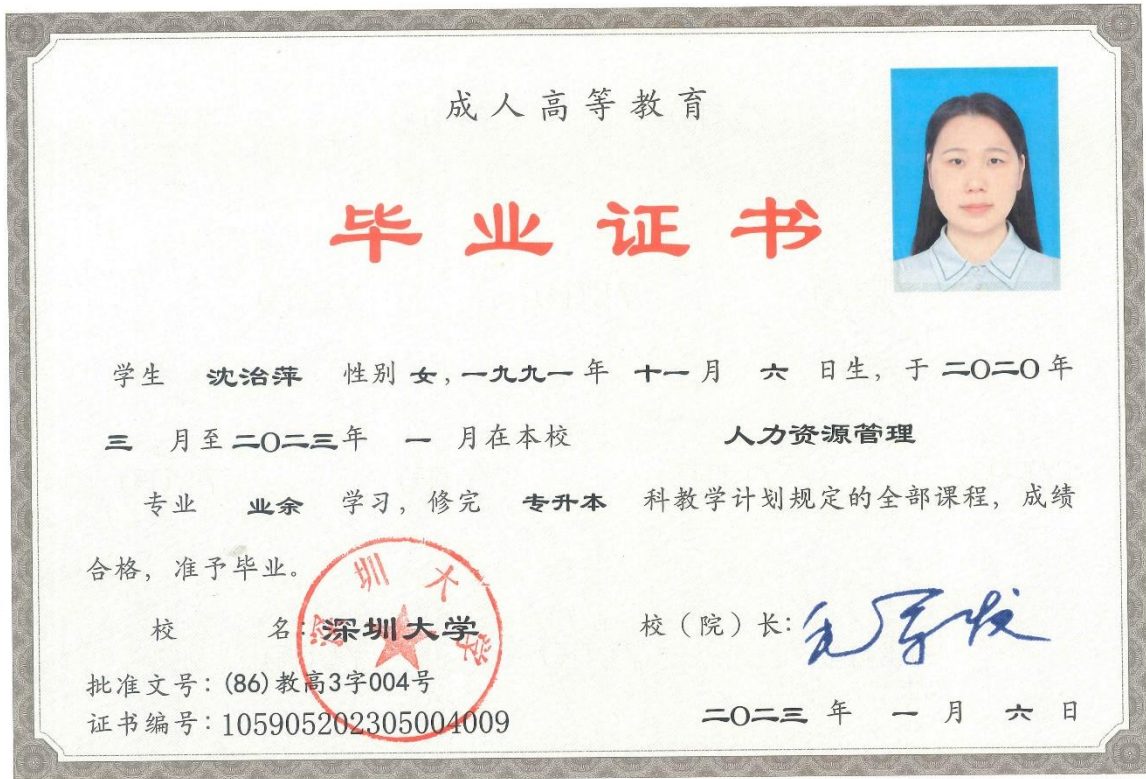 成人高等教育
毕业证书
学生 沈治萍 性别 女,一九九一年 十一月 六 日生, 于 二O二O年
三 月至二O二三年 一 月在本校 人力资源管理
专业 业余 学习, 修完 专升本 科教学计划规定的全部课程, 成绩
合格, 准予毕业。
校 名:深圳大学
校(院)长:毛军发
深圳大学
批准文号:(86)教高3字004号
证书编号:105905202305004009
二O二三 年 一 月 六 日